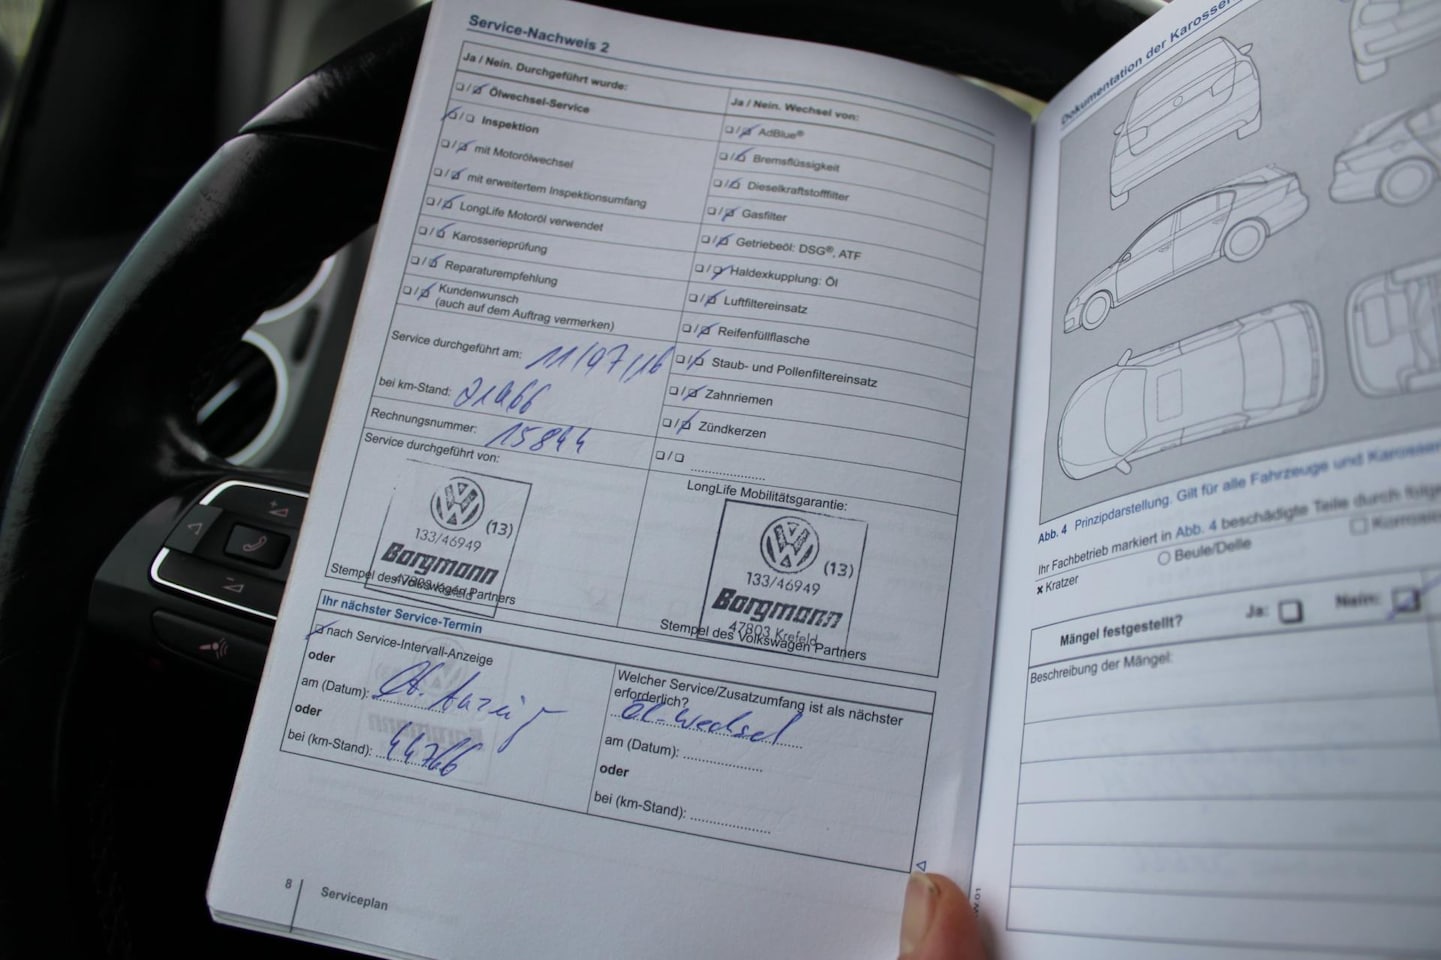 Service-Nachweis 2
Ja / Nein. Durchgeführt wurde:
Ölwechsel-Service
Inspektion
mit Motorölwechsel
mit erweitertem Inspektionsumfang
LongLife Motoröl verwendet
Karosserieprüfung
Reparaturempfehlung
Kundenwunsch
(auch auf dem Auftrag vermerken)
Service durchgeführt am: 11/07/16
bei km-Stand: 21966
Rechnungsnummer: 15844
Service durchgeführt von:
(13)
133/46949
Borgmann
47803 Krefeld
Stempel des Volkswagen Partners
Ja / Nein. Wechsel von:
AdBlue®
Bremsflüssigkeit
Dieselkraftstofffilter
Gasfilter
Getriebeöl: DSG®, ATF
Haldexkupplung: Öl
Luftfiltereinsatz
Reifenfüllflasche
Staub- und Pollenfiltereinsatz
Zahnriemen
Zündkerzen
LongLife Mobilitätsgarantie:
(13)
133/46949
Borgmann
47803 Krefeld
Stempel des Volkswagen Partners
Ihr nächster Service-Termin
nach Service-Intervall-Anzeige
oder
am (Datum):
oder
bei (km-Stand): 44766
Welcher Service/Zusatzumfang ist als nächster
erforderlich?
Öl-Wechsel
am (Datum):
oder
bei (km-Stand):
8
Serviceplan
Dokumentation der
Abb. 4 Prinzipdarstellung. Gilt für alle Fahrzeuge und
Ihr Fachbetrieb markiert in Abb. 4 beschädigte Teile durch
Kratzer
Beule/Delle
Mängel festgestellt?
Ja:
Nein:
Beschreibung der Mängel: